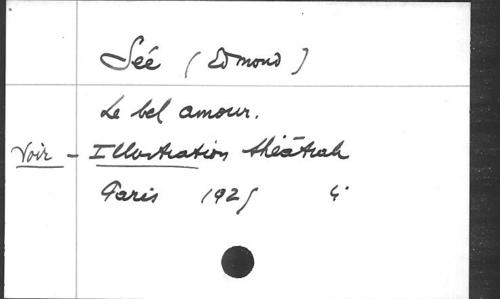 Sée (Edmond)
Le bel amour.
Voir - Illustration théâtrale
Paris 1925 4°